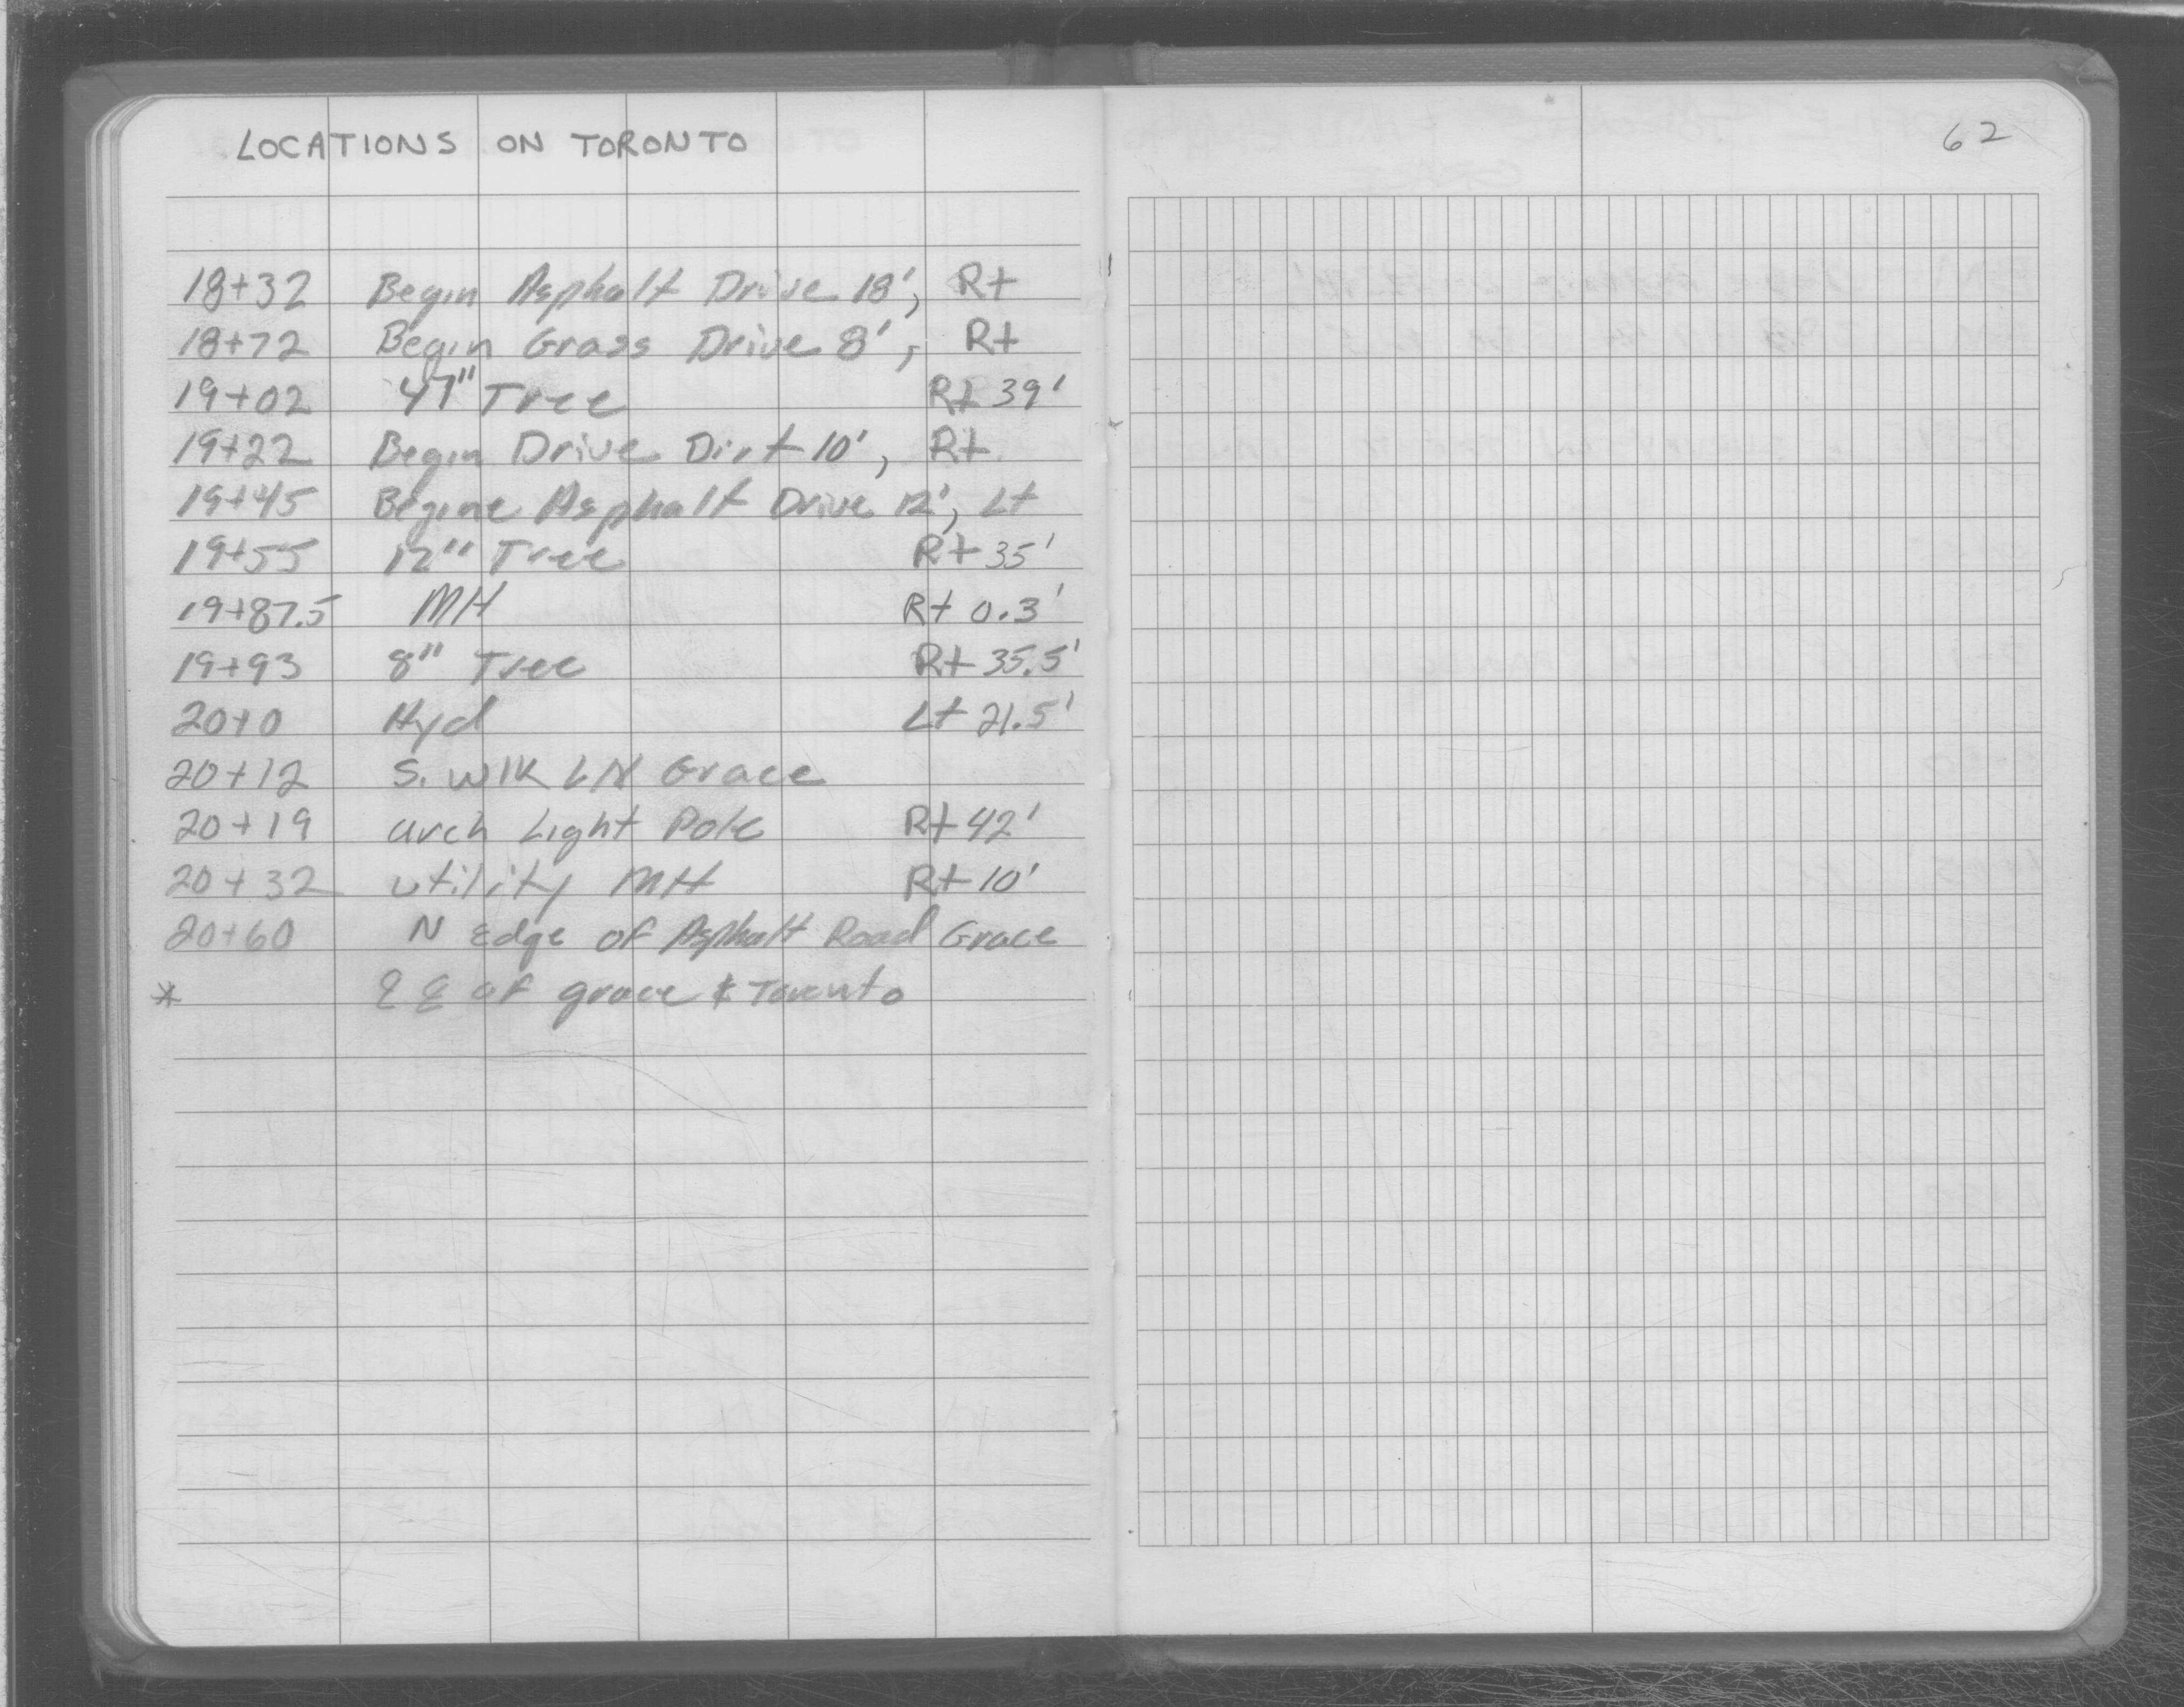 LOCATIONS ON TORONTO
62
18+32 Begin Asphalt Drive 18', Rt
18+72 Begin Grass Drive 8', Rt
19+02 47" Tree Rt 39'
19+22 Begin Drive Dirt 10', Rt
19+45 Begine Asphalt Drive 12', Lt
19+55 12" Tree Rt 35'
19+87.5 MH Rt 0.3'
19+93 8" Tree Rt 35.5'
20+0 Hyd Lt 21.5'
20+12 S. Wlk LN Grace
20+19 arch Light Pole Rt 42'
20+32 utility MH Rt 10'
20+60 N Edge of Asphalt Road Grace
* of grace & Toronto